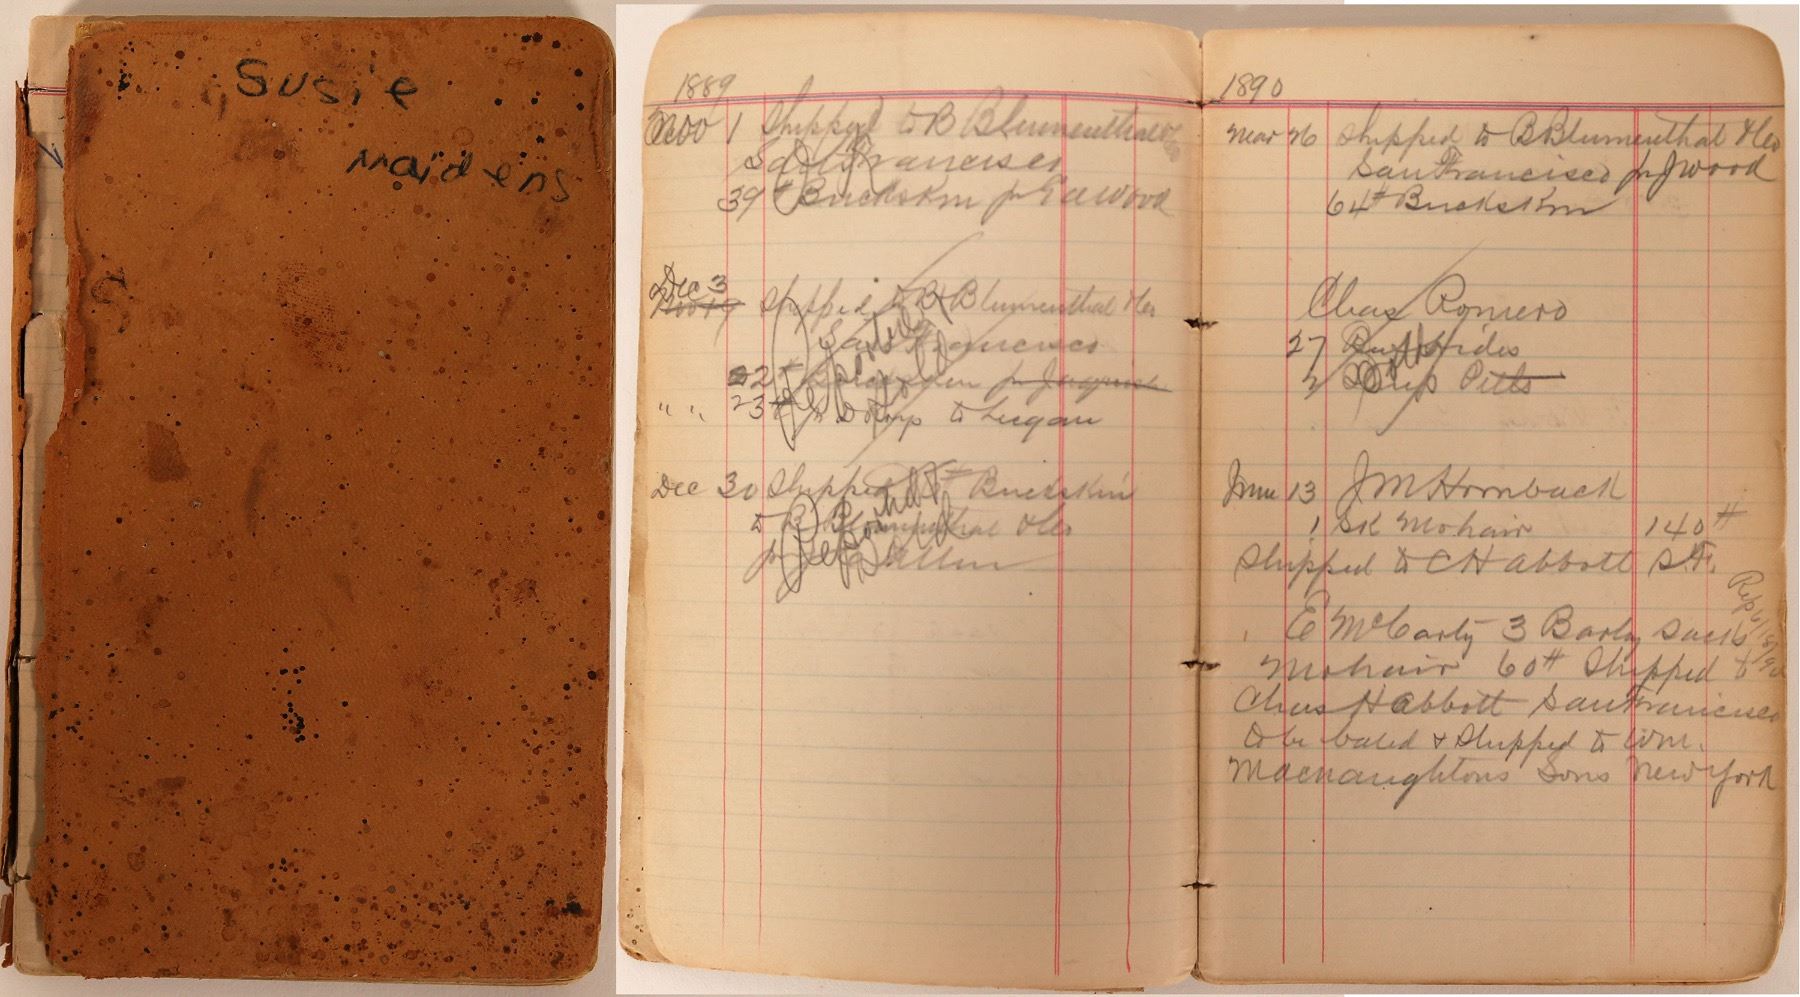 Susie
Maidens
1889
Nov 1 Shipped to B Blumenthal & Co
San Francisco
39# Buckskin for Wood
Dec 3
Shipped to B Blumenthal & Co
San Francisco
22# Buckskin for
" " 23# to Lugan
Dec 30 Shipped # Buckskin
to B Blumenthal & Co
for Allen
1890
Mar 26 Shipped to B Blumenthal & Co
San Francisco for J Wood
64# Buckskin
Chas Romero
27 Hides
2 Pelts
June 13 J M Hornback
1 SK Mohair 140#
Shipped to C H Abbott S.F.
E McCarty 3 Barly Sacks
Mohair 60# Shipped to
Chas H Abbott San Francisco
to be baled & Shipped to Wm.
Macnaughtons Sons New York